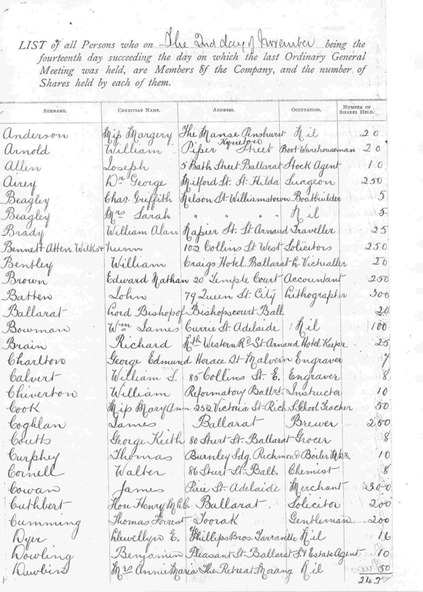 LIST of all Persons who on The 2nd day of November being the
fourteenth day succeeding the day on which the last Ordinary General
Meeting was held, are Members of the Company, and the number of
Shares held by each of them.
SURNAME. CHRISTIAN NAME. ADDRESS. OCCUPATION. NUMBER OF SHARES HELD.
Anderson Miss Margery The Manse Penshurst Nil 20
Arnold William Piper Street Kyneton Boot Warehouseman 20
Allen Joseph 5 Bath Street Ballarat Stock Agent 10
Airey Dr George Milford St. St Hilda Surgeon 250
Beagley Chas. Griffith Nelson St Williamstown Boatbuilder 5
Beagley Mrs Sarah " " " Nil 5
Brady William Alan Napier St. St Arnaud Traveller 25
Bennett Attenborough 102 Collins St West Solicitors 250
Bentley William Craigs Hotel Ballarat L. Victualler 20
Brown Edward Nathan 20 Temple Court Accountant 250
Batten John 79 Queen St. City Lithographer 300
Ballarat Lord Bishop of Bishopscourt Ball 20
Bowman Wm James Currie St Adelaide Nil 100
Brain Richard Nth Western Rd St Arnaud Hotel Keeper 25
Charlton George Edmund Horace St Malvern Engraver 7
Calvert William S. 85 Collins St. E. Engraver 8
Cheverton William Reformatory Ballrt. Instructor 10
Cook Miss Mary Ann 252 Victoria St Rich. School Teacher 50
Coghlan James Ballarat Brewer 200
Coutts George Keith 80 Sturt St. Ballarat Grocer 8
Curphey Thomas Burnley Richmond Boiler Maker 10
Cornell Walter 86 Sturt St. Ballt. Chemist 8
Cowan James Pirie St. Adelaide Merchant 2300
Cuthbert Hon. Henry M.L.C. Ballarat Solicitor 200
Cumming Thomas Forrest Toorak Gentleman 200
Dyer Llewellyn E. Phillips Bros. Tarraville Nil 16
Dowling Benjamin Pleasant St Ballarat Estate Agent 10
Mrs Annie Maria The Retreat Morang Nil 50